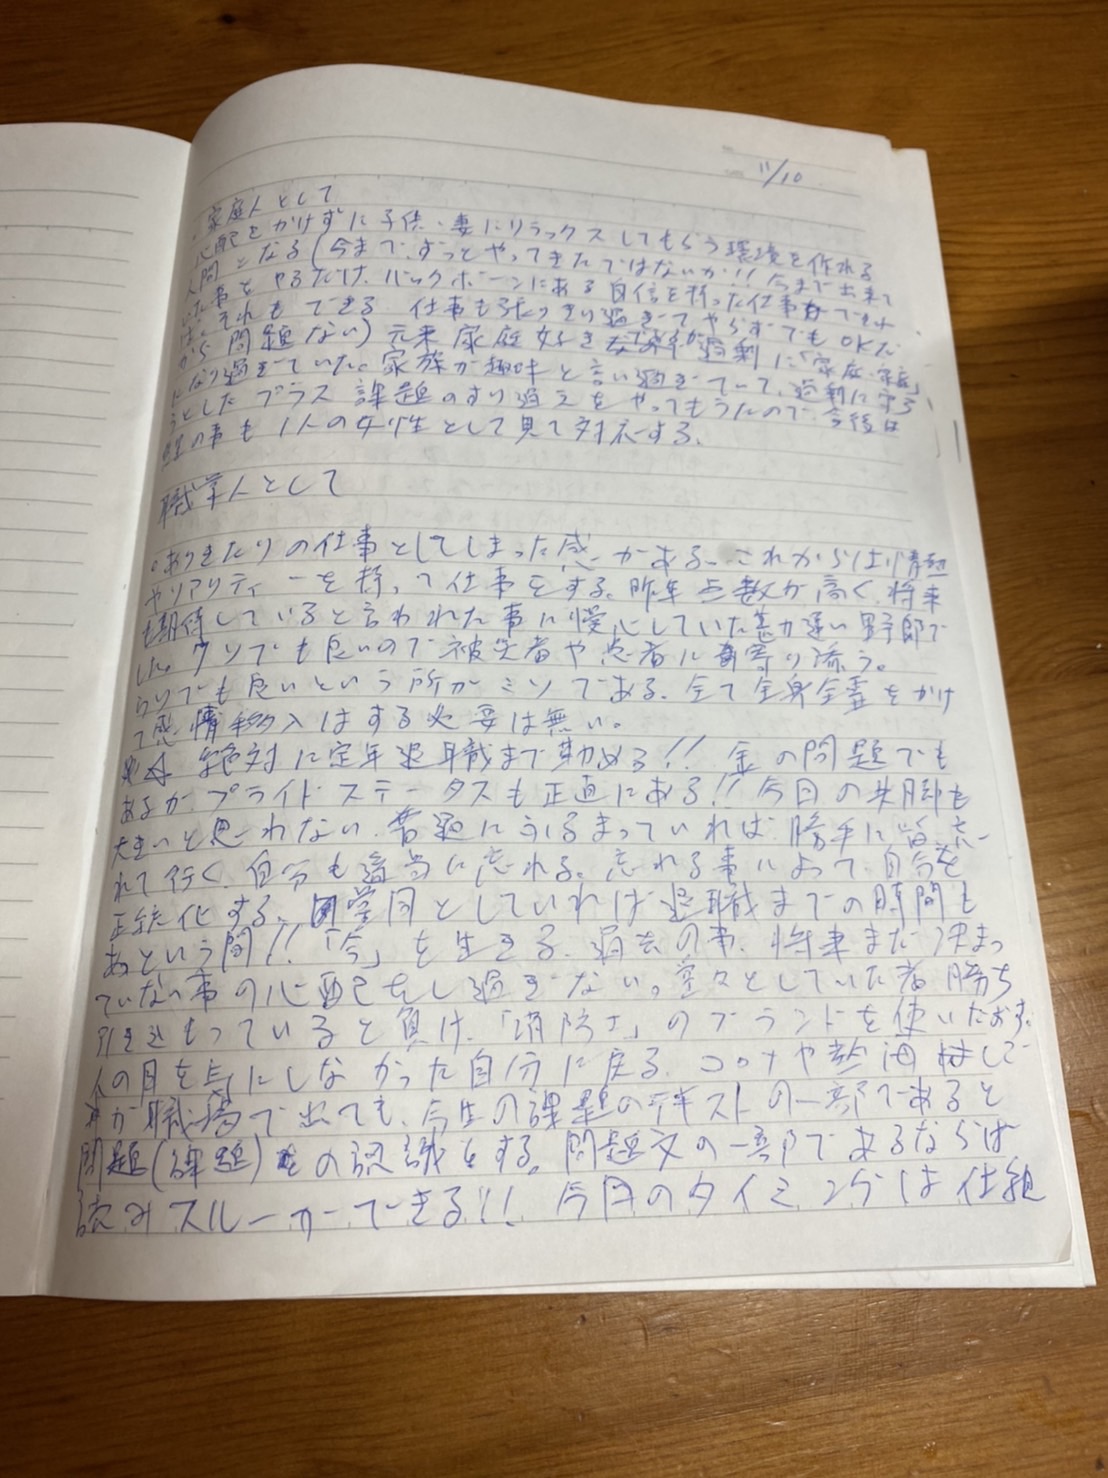 11/10
・家庭人として
心配をかけずに子供・妻にリラックスしてもらう環境を作れる
人間になる(今まで、ずっとやってきたではないか!!今まで出来て
いた事をやるだけ。バックボーンにある自信を持った仕事ができれ
ば、それもできる。仕事も張りきり過ぎてやらずでもOKだ
から問題ない)元来家庭好きな 過剰に「家庭・家庭」
になり過ぎていた。家族が趣味と言い過ぎていて、過剰に守ろ
うとしたプラス課題のすり替えをやってもうたので、今後は
の事も1人の女性として見て対応する。
職業人として
○ありきたりの仕事としてしまった感がある。これからは情熱
やリアリティーを持って仕事をする。昨年点数が高く、将来
も期待していると言われた事に慢心していた勘違い野郎で
した。ウソでも良いので被災者や患者に寄り添う。
ウソでも良いという所がミソである。全て全身全霊をかけ
て感情移入はする必要は無い。
絶対に定年退職まで勤める!!金の問題でも
あるがプライド、ステータスも正直にある!!今日の失脚も
大きいと思われない。普通にふるまっていれば、勝手に皆忘
れて行く。自分も適当に忘れる。忘れる事によって、自分を
正統化する。 学問としていれば退職までの時間も
あっという間!!「今」を生きる。過去の事、将来まだ決まっ
ていない事の心配をし過ぎない。堂々としていた者勝ち
引きこもっていると負け。「消防士」のブランドを使いたおす。
人の目を気にしなかった自分に戻る。コロナや熱海
が職場で出ても、今生の課題のテキストの一部であると
問題(課題)の認識をする。問題文の一部であるならば
読みスルーができる!!今回のタイミングは仕組